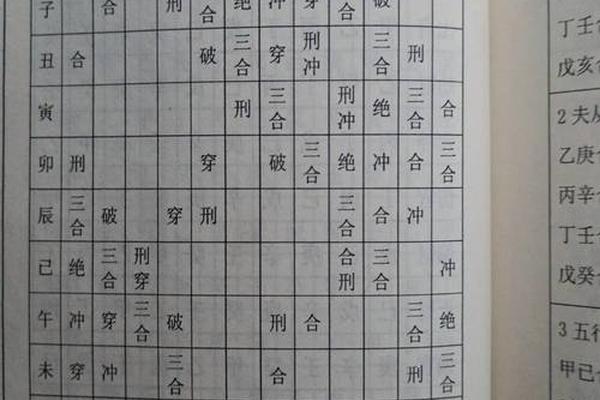 子 合 刑 三合 绝 冲 穿 三合 破
丑 合 破 三合 穿 刑冲 三合 刑
寅 刑 三合 刑冲 绝 三合 合
卯 刑 穿 破 三合 绝 冲 合 三合
辰 三合 破 穿 刑 三合 合 冲
己 绝 三合 刑穿 合刑 三合 冲
午 冲 穿 三合 破 刑 合 三合 绝
未 穿 冲 三合 合 刑 三合
丁壬
戊亥
2夫从
乙庚
丙辛
丁壬
戊癸
3五行
甲己